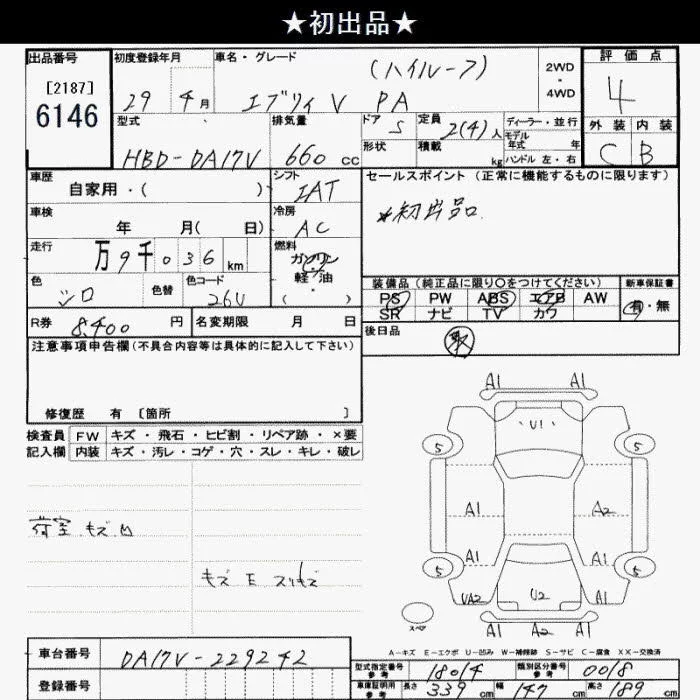 ★初出品★
出品番号 初度登録年月 車名・グレード 評価点
[2187]
6146
29 4月
(ハイルーフ)
エブリィ V PA
2WD
・
4WD
4
型式 排気量 ドア S 定員 2(4)人 ディーラー・並行 外装 内装
HBD-DA17V 660 cc
形状 積載 kg モデル年式 年
ハンドル 左・右
C B
車歴 シフト セールスポイント (正常に機能するものに限ります)
自家用・( ) IAT
*初出品.
車検 冷房
年 月( 日) AC
走行 燃料
万9千036 km ガソリン
軽・油
( )
色 色替 色コード
シロ 26U
装備品 (純正品に限り○をつけてください) 新車保証書
PS PW ABS エアB AW 有・無
SR ナビ TV カワ
R券 8,400 円 名変期限 月 日
後日品 取
注意事項申告欄 (不具合内容等は具体的に記入して下さい)
修復歴 有 〔箇所 〕
検査員 FW キズ・飛石・ヒビ割・リペア跡・×要
記入欄 内装 キズ・汚レ・コゲ・穴・スレ・キレ・破レ
荷室 キズ凹
キズ E スリキズ
A1 A1
U1
5 5
A1 A2
A1 A1
5 5
UA2 U2 A1
スペア
A1 A2 A1
A-キズ E-エクボ U-凹み W-補修跡 S-サビ C-腐食 XX-交換済
車台番号 DA17V-229242
型式指定番号 参考 18014 類別区分番号 参考 0018
登録番号
車庫証明用 参考 長さ 339 cm 幅 147 cm 高さ 189 cm